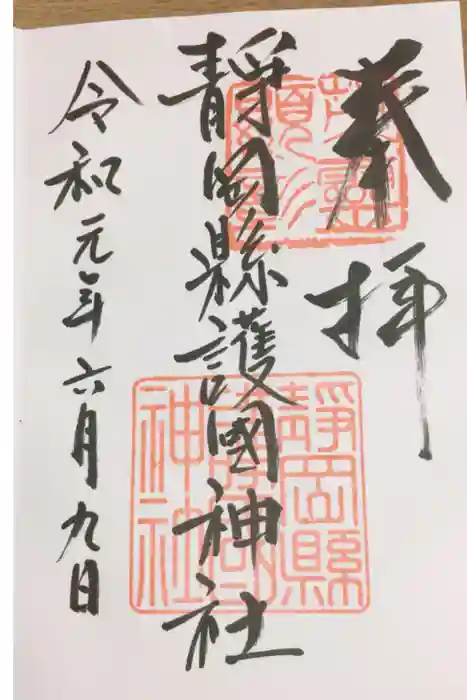 奉拝
靜岡縣護國神社
令和元年六月九日
靜岡縣
護國
神社